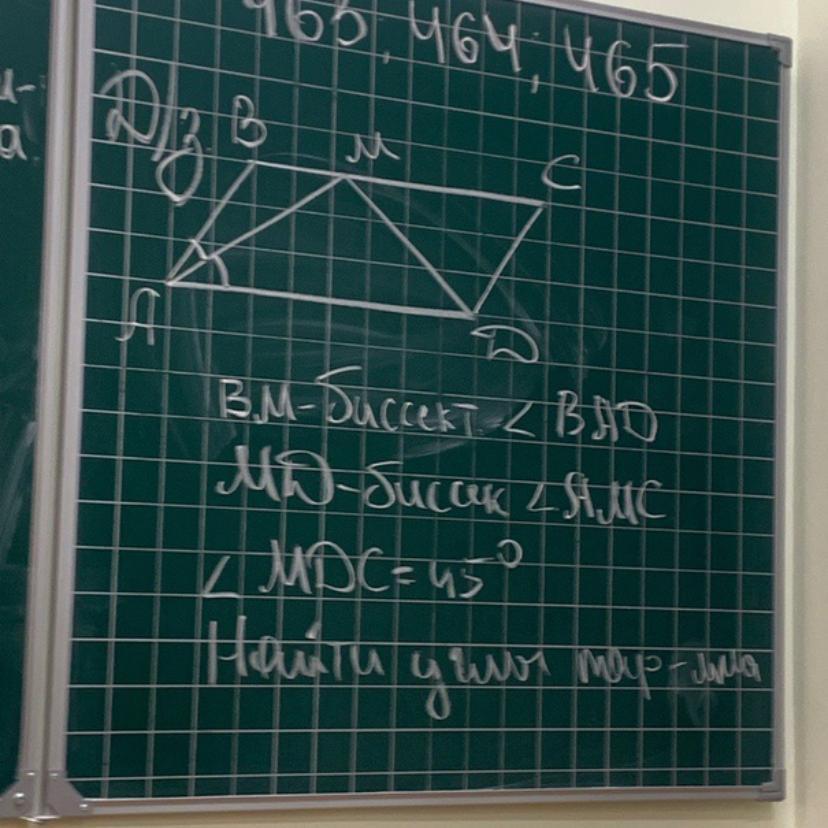 463, 464, 465
Д/з
B M C
A D
BM-биссект ∠ BAD
MD-бисек ∠AMC
∠ MDC = 45°
Найти углы пар-лма